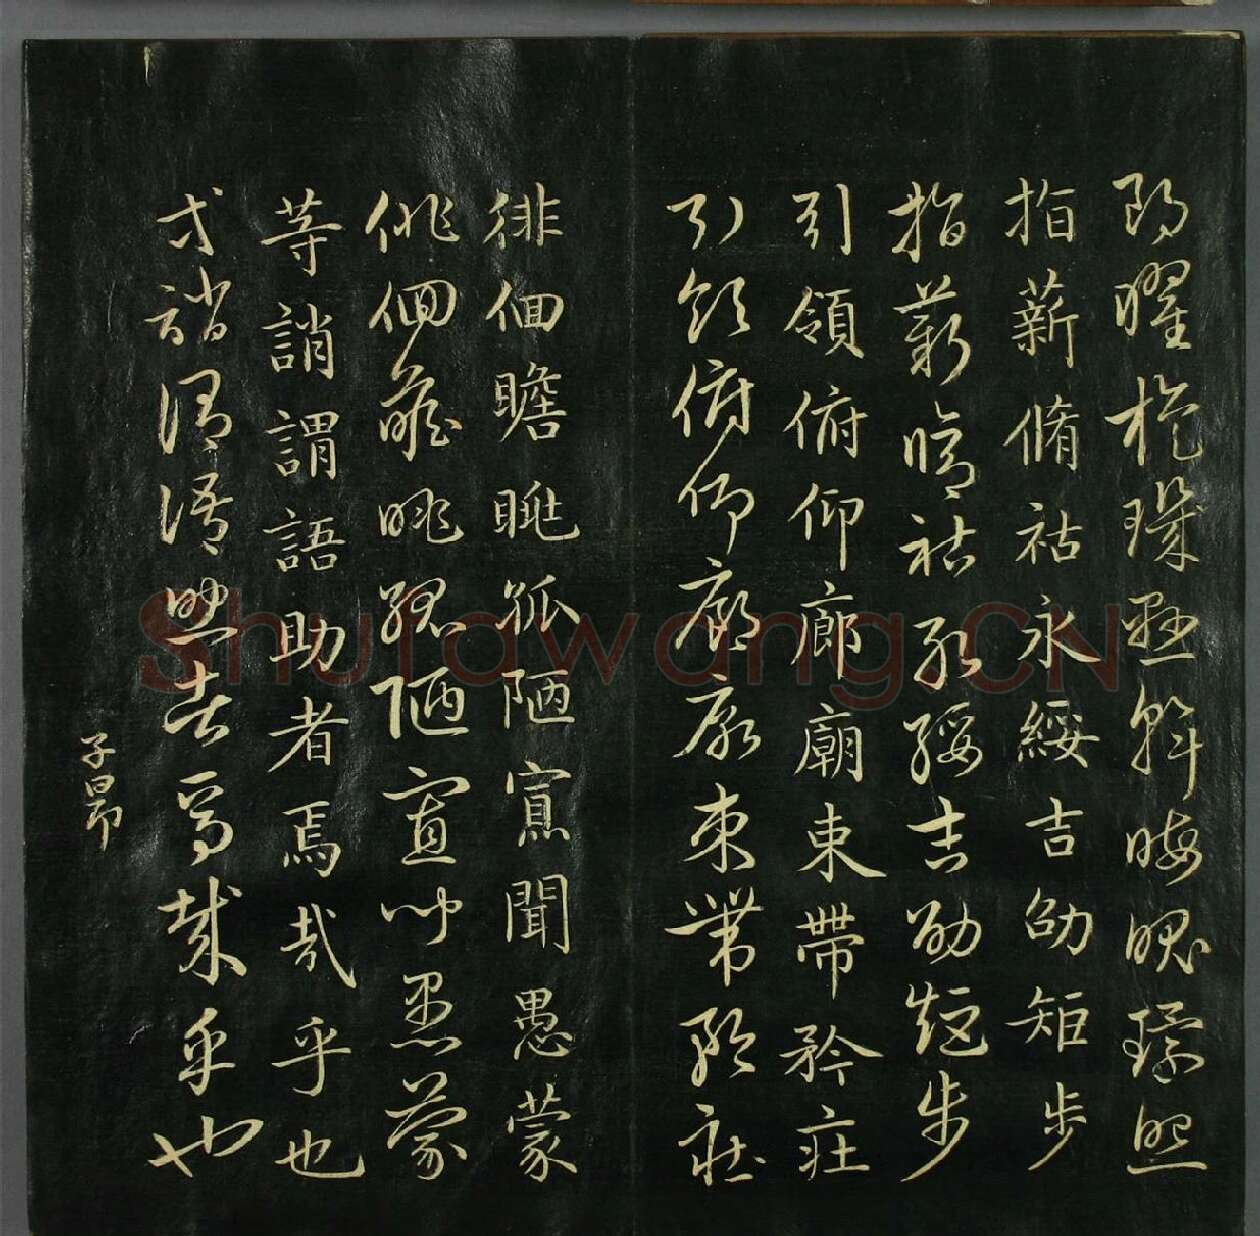 朗曜旋璣懸斡晦魄環照
指薪脩祜永綏吉劭矩步
指薪脩祜永綏吉劭矩步
引領俯仰廊廟束帶矜莊
引領俯仰廊廟束帶矜莊
徘徊瞻眺孤陋寡聞愚蒙
徘徊瞻眺孤陋寡聞愚蒙
等誚謂語助者焉哉乎也
等誚謂語助者焉哉乎也
子昂
Shufawang.CN